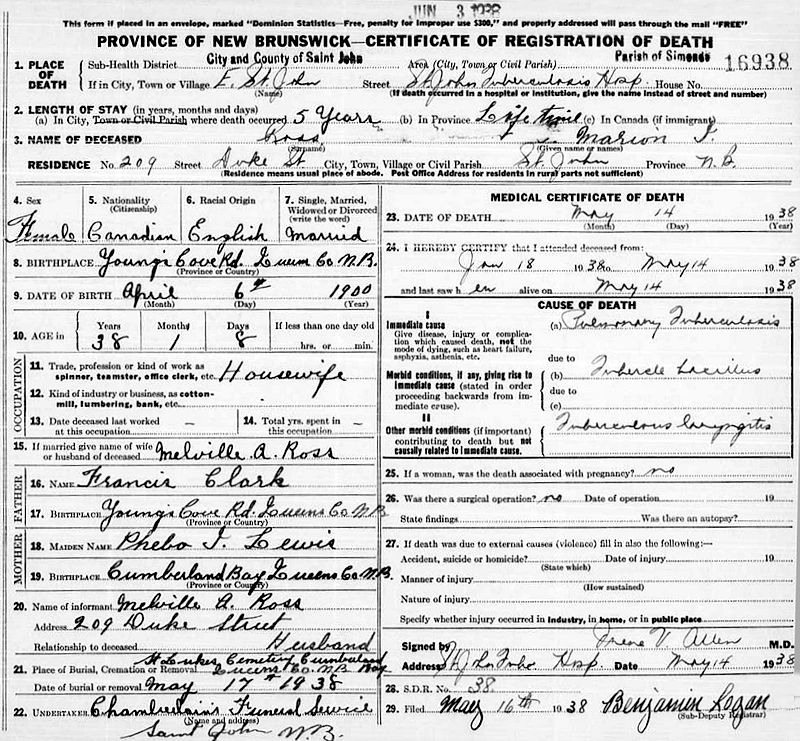 JUN 3 1938
This form if placed in an envelope, marked "Dominion Statistics—Free, penalty for improper use $300," and properly addressed will pass through the mail "FREE"
PROVINCE OF NEW BRUNSWICK—CERTIFICATE OF REGISTRATION OF DEATH
16938
1. PLACE OF DEATH
Sub-Health District City and County of Saint John Area (City, Town or Civil Parish) Parish of Simonds
If in City, Town or Village E. St. John (Name) Street St. John Tuberculosis Hosp. House No.
(If death occurred in a hospital or institution, give the name instead of street and number)
2. LENGTH OF STAY (in years, months and days)
(a) In City, Town or Civil Parish where death occurred 5 Years (b) In Province Life time (c) In Canada (if immigrant)
3. NAME OF DECEASED Ross (Surname) Marion I. (Given name or names)
RESIDENCE No. 209 Street Duke St City, Town, Village or Civil Parish St. John Province N.B.
(Residence means usual place of abode. Post Office Address for residents in rural parts not sufficient)
4. Sex Female
5. Nationality (Citizenship) Canadian
6. Racial Origin English
7. Single, Married, Widowed or Divorced (write the word) Married
8. BIRTHPLACE Young's Cove Rd. Queens Co N.B.
(Province or Country)
9. DATE OF BIRTH April 6th 1900
(Month) (Day) (Year)
10. AGE in Years Months Days If less than one day old
38 1 8 hrs. or min.
OCCUPATION
11. Trade, profession or kind of work as spinner, teamster, office clerk, etc. Housewife
12. Kind of industry or business, as cotton-mill, lumbering, bank, etc.
13. Date deceased last worked at this occupation -
14. Total yrs. spent in this occupation -
15. If married give name of wife or husband of deceased Melville A. Ross
FATHER
16. NAME Francis Clark
17. BIRTHPLACE Young's Cove Rd. Queens Co N.B.
(Province or Country)
MOTHER
18. MAIDEN NAME Phebo J. Lewis
19. BIRTHPLACE Cumberland Bay Queens Co N.B.
(Province or Country)
20. Name of informant Melville A. Ross
Address 209 Duke Street
Relationship to deceased Husband
21. Place of Burial, Cremation or Removal St Lukes Cemetery Cumberland Bay Queens Co. N.B.
Date of burial or removal May 17th 1938
22. UNDERTAKER Chamberlain's Funeral Service
(Name and address)
Saint John N.B.
MEDICAL CERTIFICATE OF DEATH
23. DATE OF DEATH May 14 1938
(Month) (Day) (Year)
24. I HEREBY CERTIFY that I attended deceased from:
Jan 18 1938 to May 14 1938
and last saw h er alive on May 14 1938
CAUSE OF DEATH
I
Immediate cause
Give disease, injury or complication which caused death, not the mode of dying, such as heart failure, asphyxia, asthenia, etc.
(a) Pulmonary Tuberculosis
due to
Morbid conditions, if any, giving rise to immediate cause (stated in order proceeding backwards from immediate cause).
(b) Tubercle bacillus
due to
(c)
II
Other morbid conditions (if important) contributing to death but not causally related to immediate cause.
Tuberculous laryngitis
25. If a woman, was the death associated with pregnancy? no
26. Was there a surgical operation? no Date of operation 19
State findings Was there an autopsy?
27. If death was due to external causes (violence) fill in also the following:—
Accident, suicide or homicide? Date of injury 19
(State which)
Manner of injury
(How sustained)
Nature of injury
Specify whether injury occurred in industry, in home, or in public place
Signed by Irene V. Allen M.D.
Address St John Tube. Hosp. Date May 14 1938
28. S.D.R. No. 38
29. Filed May 16th 1938 Benjamin Logan
(Sub-Deputy Registrar)